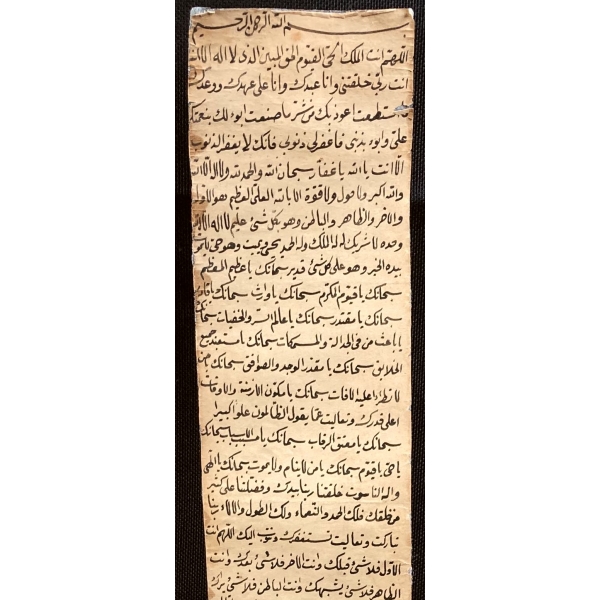 بسم الله الرحمن الرحيم
اللهم انت الملك الحي القيوم الحق المبين الذي لا اله الا انت
انت ربي خلقتني وانا عبدك وانا على عهدك ووعدك
ما استطعت اعوذ بك من شر ما صنعت ابوء لك بنعمتك
علي وابوء بذنبي فاغفرلي ذنوبي فانك لا يغفر الذنوب
الا انت يا الله يا غفار سبحان الله والحمد لله ولا اله الا الله
والله اكبر ولا حول ولا قوة الا بالله العلي العظيم هو الاول
والاخر والظاهر والباطن وهو بكل شئ عليم لا اله الا الله
وحده لا شريك له له الملك وله الحمد يحيي ويميت وهو حي لا يموت
بيده الخير وهو على كل شئ قدير سبحانك يا عظيم المعظم
سبحانك يا قيوم المكرم سبحانك يا وارث سبحانك يا قادر
سبحانك يا مقتدر سبحانك يا عالم السر والخفيات سبحانك
يا باعث من في سبحانك جميع
الخلايق سبحانك يا مقدر الوجد سبحانك من
لا تطرأ عليه الافات سبحانك يا مكون الازمنة والاوقات
اعلى قدرك وتعاليت عما يقول الظالمون علوا كبيرا
سبحانك يا معتق الرقاب سبحانك يا مسبب الاسباب سبحانك
يا حي يا قيوم سبحانك يا من لا ينام ولا يموت سبحانك يا الهي
واله الناسوت خلقتنا ربنا بيدك وفضلتنا على كثير
من خلقك فلك الحمد والنعماء ولك الطول والالاء ربنا
تباركت وتعاليت نستغفرك ونتوب اليك اللهم انت
الاول فلا شئ قبلك وانت الاخر فلا شئ بعدك وانت
الظاهر فلا شئ يشبهك وانت الباطن فلا شئ يراك